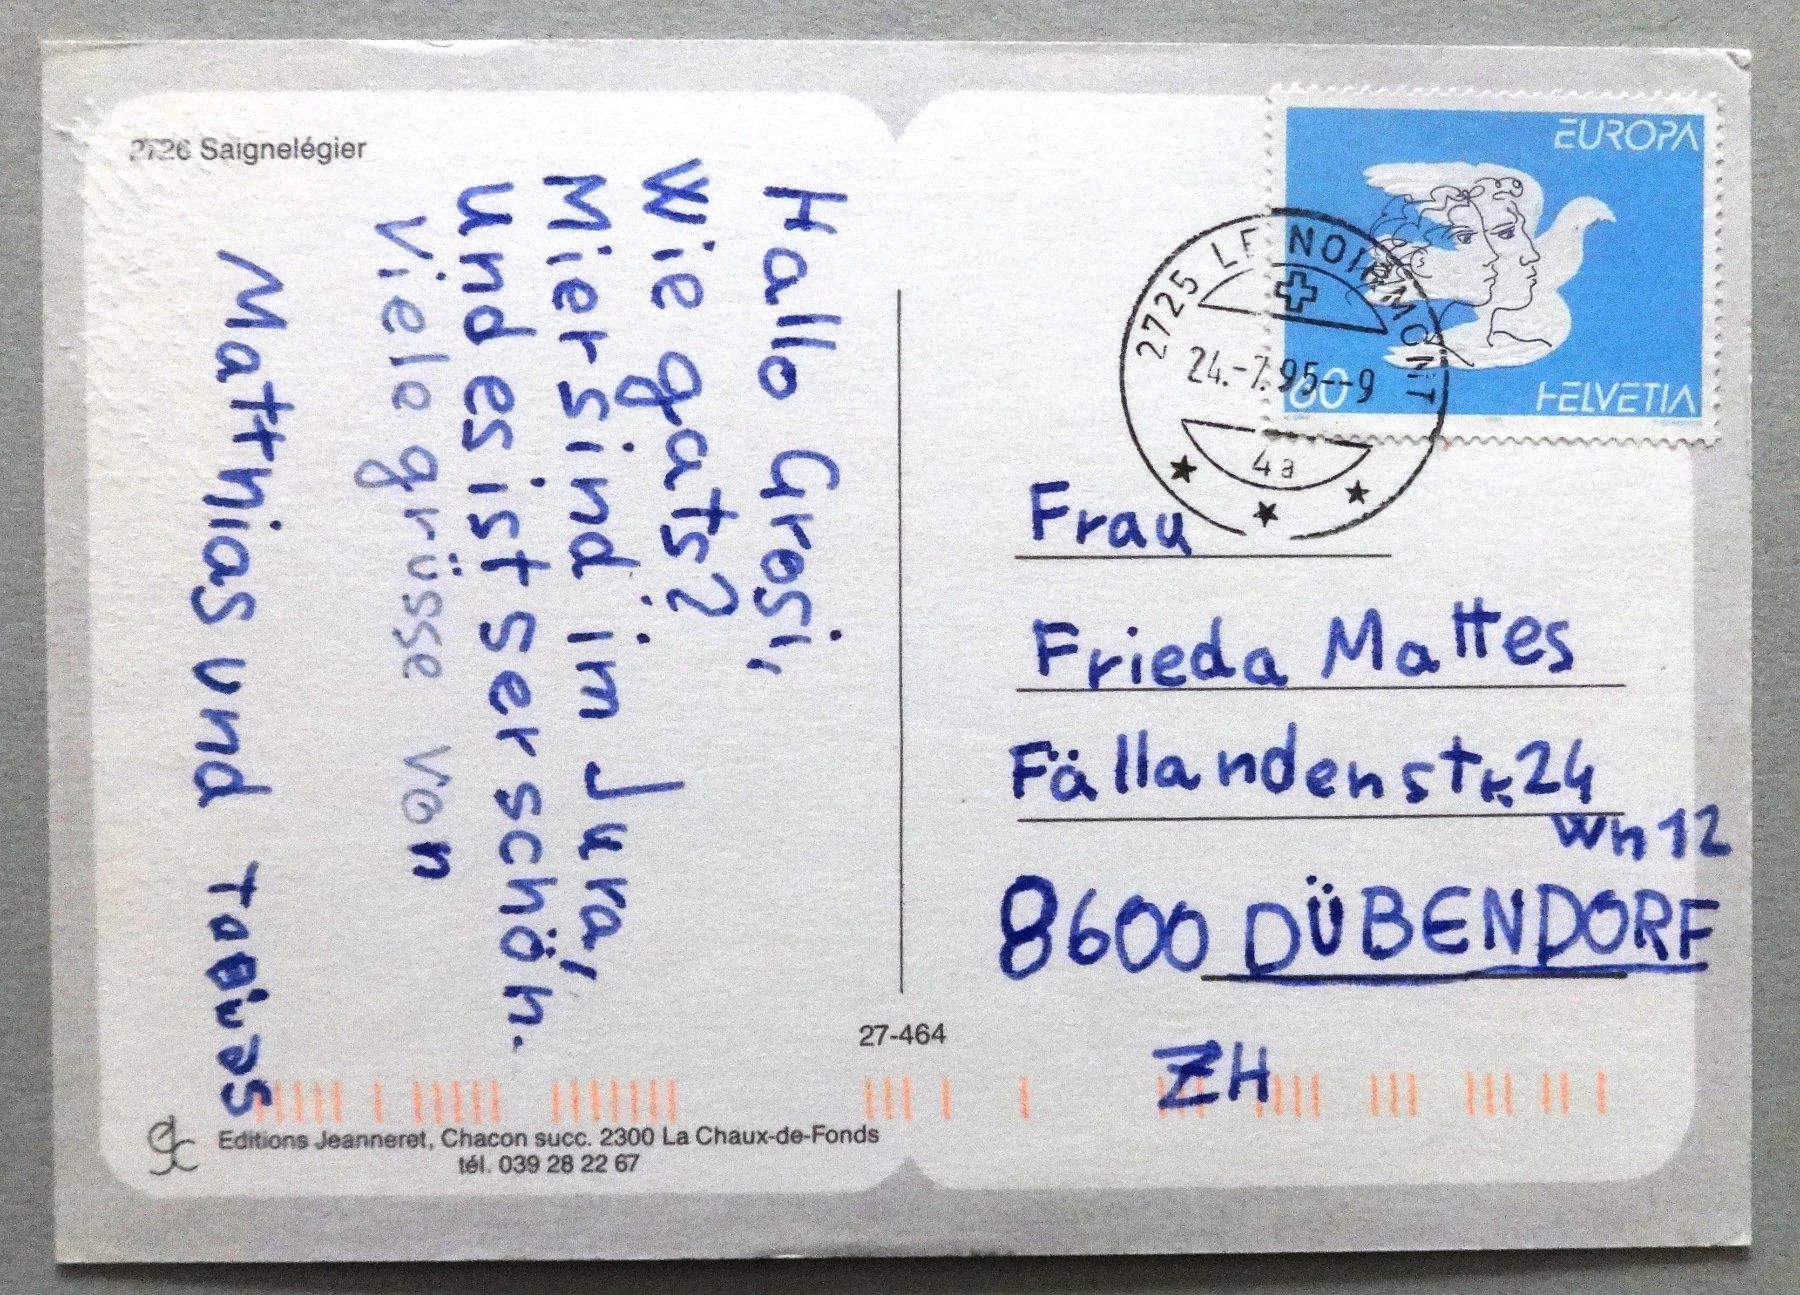 2726 Saignelégier
Hallo Grosi,
Wie gats?
Mier sind in Jura,
und es ist ser schön.
Viele grüsse von
Matthias und Tobias
EUROPA
HELVETIA
60
2725 LE NOIRMONT
24.-7.95--9
4a
Frau
Frieda Mattes
Fällandenstr. 24
Wh 12
8600 DÜBENDORF
ZH
27-464
Editions Jeanneret, Chacon succ. 2300 La Chaux-de-Fonds
tél. 039 28 22 67